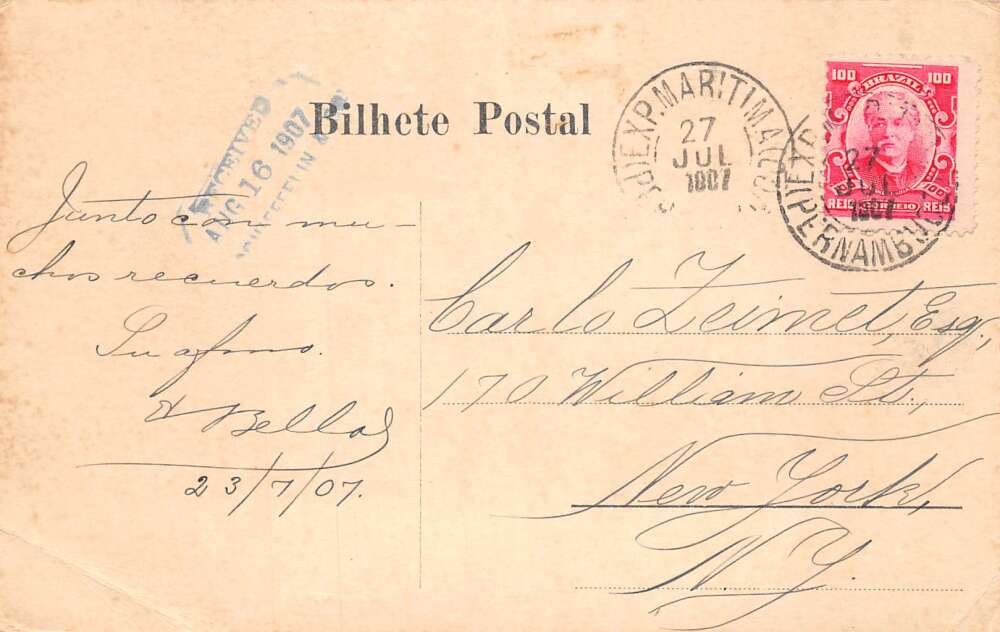 Bilhete Postal
RECEIVED
AUG 16 1907
SCHIEFFELIN &
EXP. MARITIMA
27
JUL
1907
100 100
BRAZIL
REIS CORREIO REIS
EXP.
27
JUL
1907
PERNAMBUCO
Junto con mu-
chos recuerdos.
Su afmo.
Bello
23/7/07.
Carlo Zeimet, Esq.,
170 William St.,
New York,
N.Y.